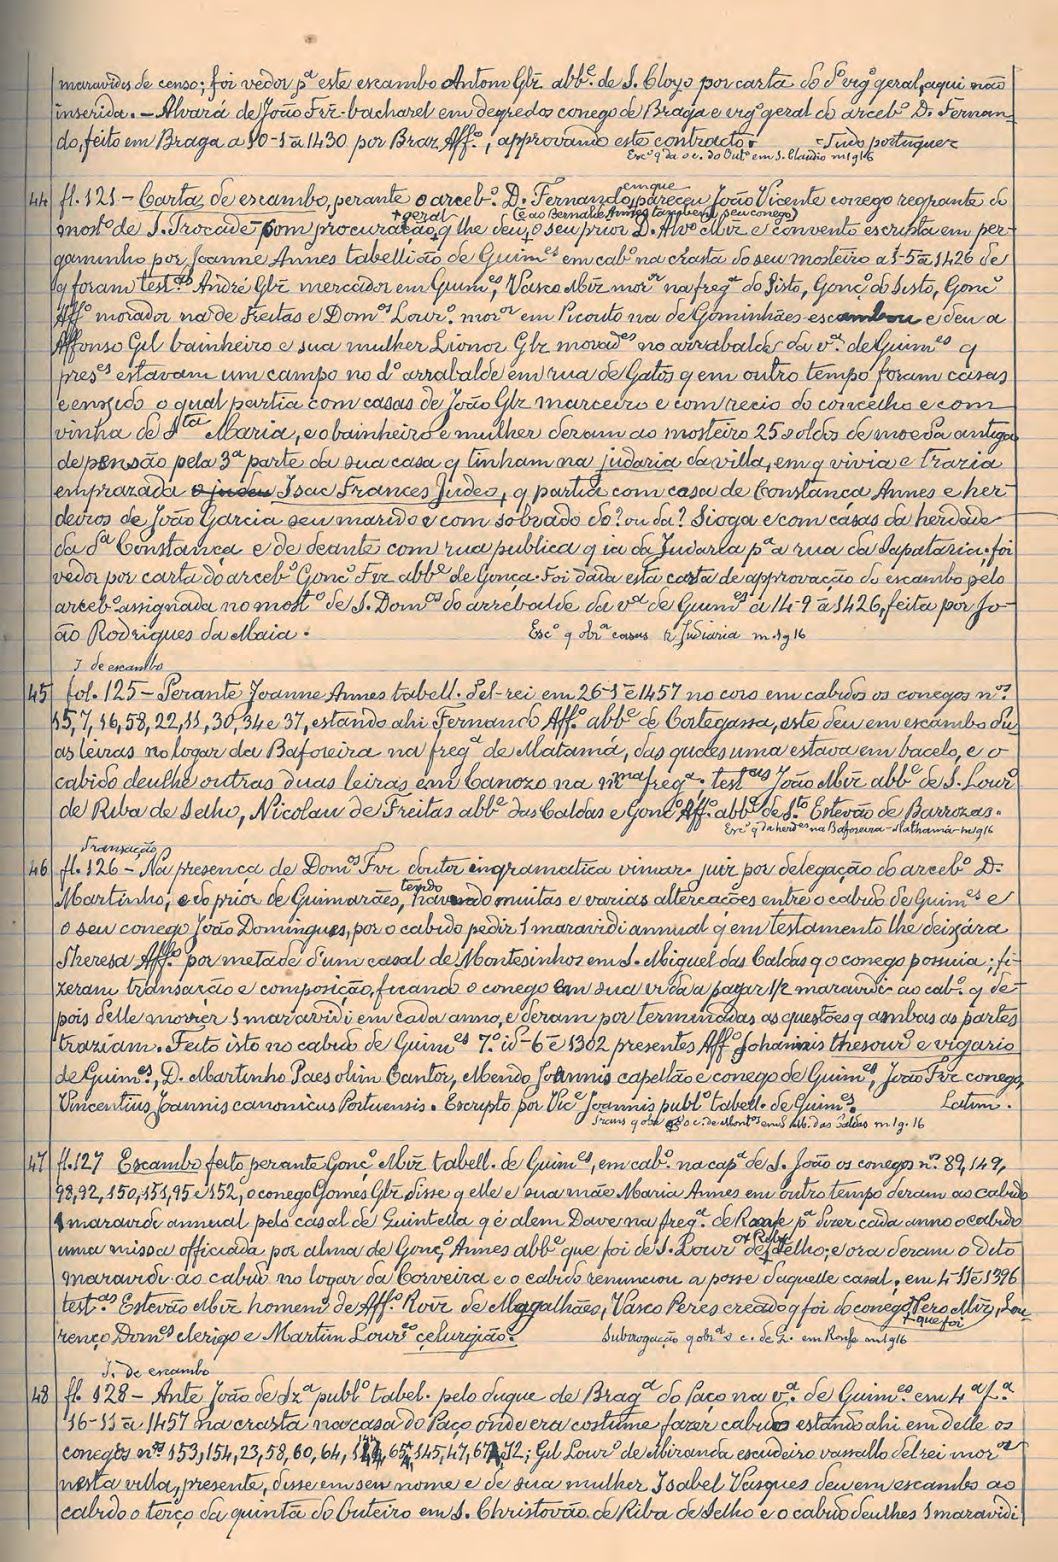 maravidis de censo; foi vedor pª este escambo Antom Glz abbᵉ. de S. Cloyo por carta do dº vrgº geral, aqui não
inserida. — Alvará de João Frz bacharel em degredos conego de Braga e vrgº geral do arcebº D. Fernan-
do, feito em Braga a 10-1 ã 1430 por Braz Affº., approvando este contracto. Tudo portuguez
Escº q da o c. do Outº em S. Claudio m 1g 16
44 fl. 121 — Carta de escambo, perante o arcebº. D. Fernando, em que pareceu João Vicente conego regrante do
mostº de S. Trocade com procuração geral q lhe deu (e ao Bernal Annes tambem seu conego) o seu prior D. Alvº Miz e convento escripta em per-
gaminho por Joanne Annes tabellião de Guimᵉˢ em cabº na crasta do seu mosteiro a 1-5 ã 1426 de
q foram testᵃˢ André Glz mercador em Guimᵉˢ, Vasco Miz morºʳ na fregª do Sisto, Gonçº do Sisto, Gonçº
Affº morador na de Freitas e Domᵒˢ Lourº. morºʳ em Picouto na de Gominhães escambou e deu a
Affonso Gil bainheiro e sua mulher Lionor Glz moradᵉˢ no arrabalde da vª. de Guimᵉˢ q
presᵉˢ estavam um campo no dº arrabalde em rua de Gatos q em outro tempo foram casas
e enxido o qual partia com casas de João Glz marceiro e com recio do concelho e com
vinha de Sᵗᵃ Maria, e o bainheiro e mulher deram ao mosteiro 25 soldos de moeda antiga
de pensão pela 3ª parte da sua casa q tinham na judaria da villa, em q vivia e trazia
emprazada o judeu Isac Frances Judeo, q partia com casa de Constança Annes e her-
deiros de João Garcia seu marido e com sobrado do? ou da? Sioga e com cásas da herdade
da dª Constança e de deante com rua publica q ia da Judaria pª a rua da Sapataria. foi
vedor por carta do arcebº Gonçº Frz abbᵉ de Gonça. Foi dada esta carta de approvação do escambo pelo
arcebº assignada no mostº de S. Domᵒˢ do arrebalde da vª de Guimᵉˢ a 14-9 ã 1426, feita por Jo-
ão Rodrigues da Maia. Escº q obrª casas R Judiaria m.1g 16
I. de escambo
45 fol. 125 — Perante Joanne Annes tabell. del-rei em 26-1 ẽ 1457 no coro em cabido os conegos nºˢ
15, 7, 16, 58, 22, 11, 30, 34 e 37, estando ahi Fernando Affº. abbᵉ de Cortegassa, este deu em escambo du-
as leiras no logar da Baforeira na fregª de Matamá, das quaes uma estava em bacelo, e o
cabido deulhe outras duas leiras em Canozo na mᵐᵃ fregª; testᵃˢ João Miz abbᵉ de S. Lourº
de Riba de Selho, Nicolau de Freitas abbᵉ das Caldas e Gonçº Affº. abbᵉ de Sᵗº Estevão de Barrozas.
Escº q da herdes na Baforeira - Mathamá - m1g16
Transação
46 fl. 126 — Na presença de Domᵒˢ Frz doutor in gramatica vimar. juiz por delegação do arcebº D.
Martinho, e do prior de Guimarães, tendo havendo muitas e varias altercações entre o cabido de Guimᵉˢ e
o seu conego João Domingues, por o cabido pedir 1 maravidi annual q em testamento lhe deixára
Theresa Affº. por metade d'um casal de Montesinhos em S. Miguel das Caldas q o conego possuia; fi-
zeram transacção e composição, ficando o conego em sua vida a pagar 1/2 maravidi ao cabº. q de-
pois delle morrer 1 maravidi em cada anno, e deram por terminadas as questões q ambas as partes
traziam. Feito isto no cabido de Guimᵉˢ 7.º id-6 ẽ 1302 presentes Affº Johannis thesourº e vigario
de Guimᵉˢ., D. Martinho Paes olim Cantor, Mendo Joannis capellão e conego de Guimᵉˢ, João Frz conego,
Vincentius Joannis canonicus Portuensis. Escripto por Vicᵉ Joannis publº tabell. de Guimᵉˢ. Latim.
Trans q obra o c. de Montᵒˢ em S. Mb. das Caldas m 1g. 16
47 fl. 127 Escambo feito perante Gonçº Miz tabell. de Guimᵉˢ, em cabº. na capª de S. João os conegos nº. 89, 149,
98, 92, 150, 151, 95 e 152, o conego Gomes Glz disse q elle e sua mãe Maria Annes em outro tempo deram ao cabido
1 maravidi annual pelo casal de Quintella q é alem Dave na fregª. de Ronfe pª dizer cada anno o cabido
uma missa officiada por alma de Gonçº Annes abbᵉ que foi de S. Lourº de Riba Selho; e ora deram o dito
maravidi ao cabido no logar da Corveira e o cabido renunciou a posse daquelle casal, em 4-11 ẽ 1396
testᵃˢ Estevão Miz homem de Affº. Roiz de Magalhães, Vasco Peres creado q foi do conego Pero Miz, que foi Lou-
renço Domᵉˢ clerigo e Martim Lourᵉº çelurgião. Subrogação q obrª o c. de Q. em Ronfe m1g16
I. de escambo
48 fl. 128 — Ante João de Szª publº tabel. pelo duque de Bragª do Paço na vª. de Guimᵉˢ em 4ª fª
16-11 ã 1457 na crasta na casa do Paço onde era costume fazer cabido estando ahi em delle os
conegos nºˢ 153, 154, 23, 58, 60, 64, 144, 65, 145, 47, 67, 72; Gil Lourº de Miranda escudeiro vassallo delrei morºʳ
nesta villa, presente, disse em seu nome e de sua mulher Isabel Vasques deu em escambo ao
cabido o terço da quinta do Outeiro em S. Christovão de Riba de Selho e o cabido deulhes 1 maravidi